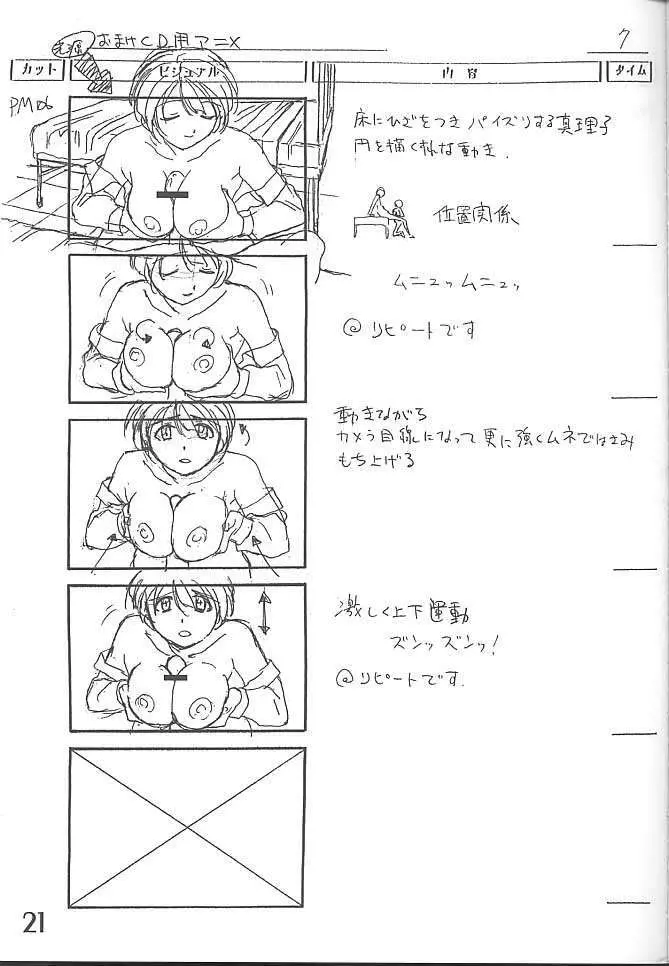 光源
おまけCD用アニメ
7
カット ビジュアル 内容 タイム
PM06
床にひざをつき パイズリする真理子
円を描く様な動き.
位置関係
ムニュッムニュッ
@リピートです
動きながら
カメラ目線になって更に強くムネではさみ
もち上げる
激しく上下運動
ズンッズンッ!
@リピートです.
21